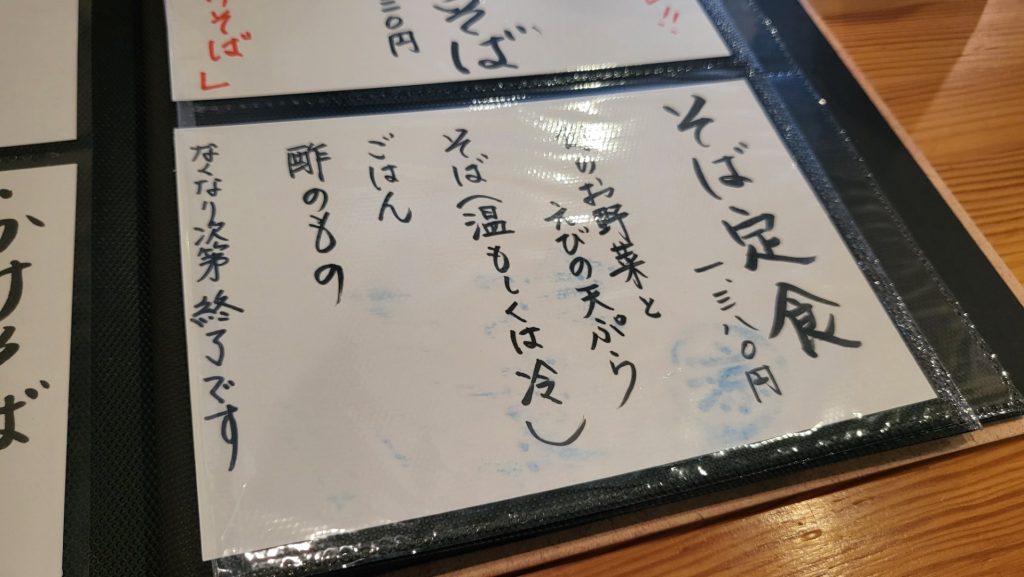 そば
三〇円
そば」
!!
そば定食
一、三八〇円
お野菜と
えびの天ぷら
そば(温もしくは冷し)
ごはん
酢のもの
なくなり次第終了です